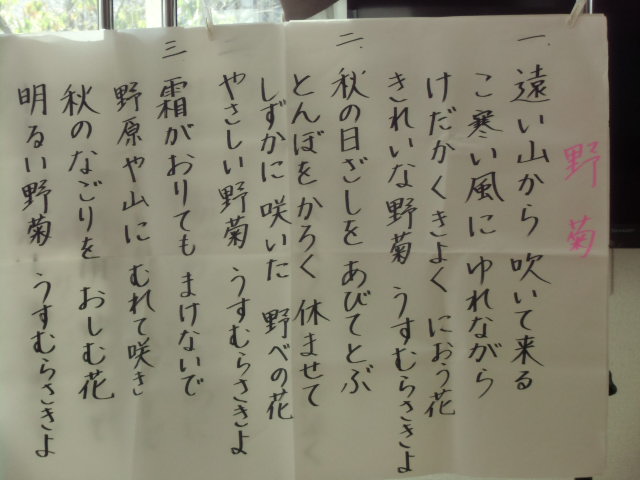 野菊
一、遠い山から 吹いて来る
こ寒い風に ゆれながら
けだかくきよく におう花
きれいな野菊 うすむらさきよ
二、秋の日ざしを あびてとぶ
とんぼをかろく 休ませて
しずかに 咲いた 野べの花
やさしい野菊 うすむらさきよ
三、霜がおりても まけないで
野原や山に むれて咲き
秋のなごりを おしむ花
明るい野菊 うすむらさきよ